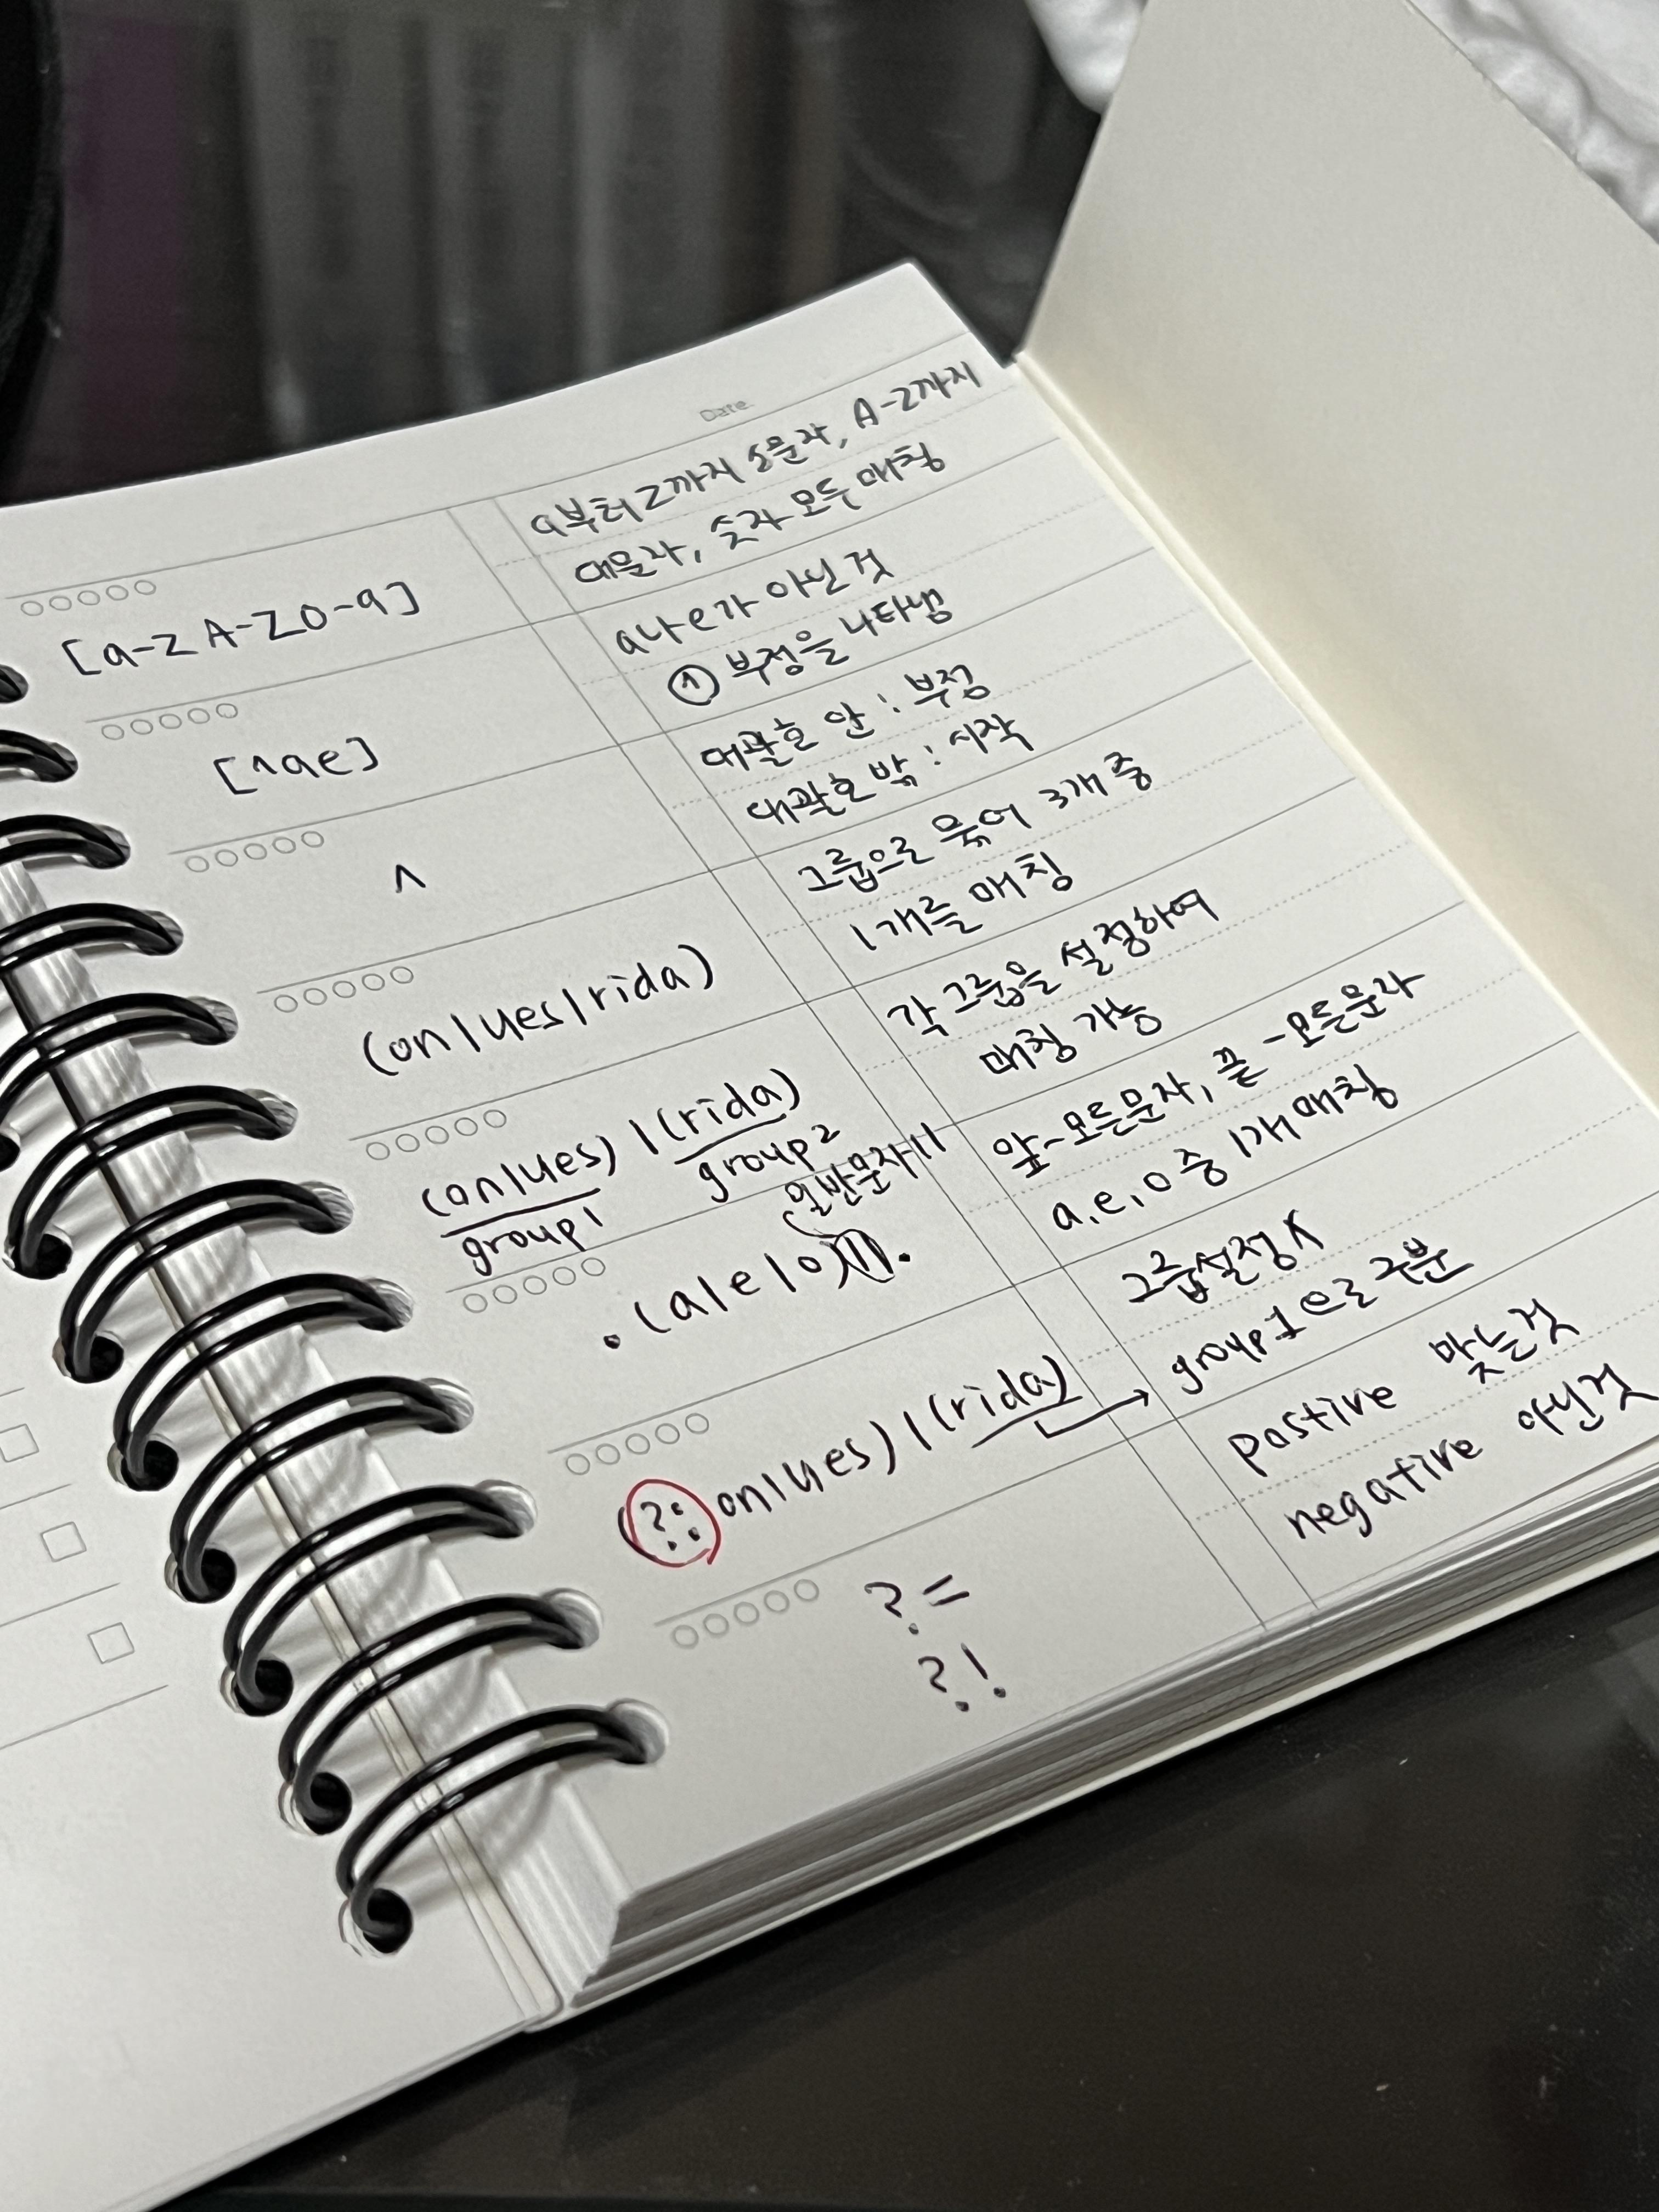 Date.
[a-z A-Z0-9]
a부터 z까지 소문자, A-Z까지
대문자, 숫자 모두 매칭
[^ae]
a나 e가 아닌 것
^ 부정을 나타냄
^
대괄호 안 : 부정
대괄호 밖 : 시작
(on|ues|rida)
그룹으로 묶어 3개 중
1개를 매칭
(on|ues) | (rida)
group1
group2
각 그룹을 설정하여
매칭 가능
일반문자 ll
.(a|e|o)ll.
앞-모든문자, 끝-모든문자
a,e,o 중 1개 매칭
(?:on|ues) | (rida)
그룹설정 X
group1으로 구분
?=
postive 맞는것
?!
negative 아닌것